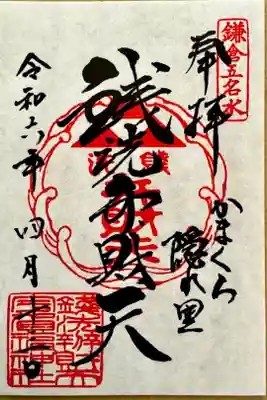 鎌倉五名水
奉拝
かまくら
隠れ里
銭洗弁財天
令和六年四月十二日